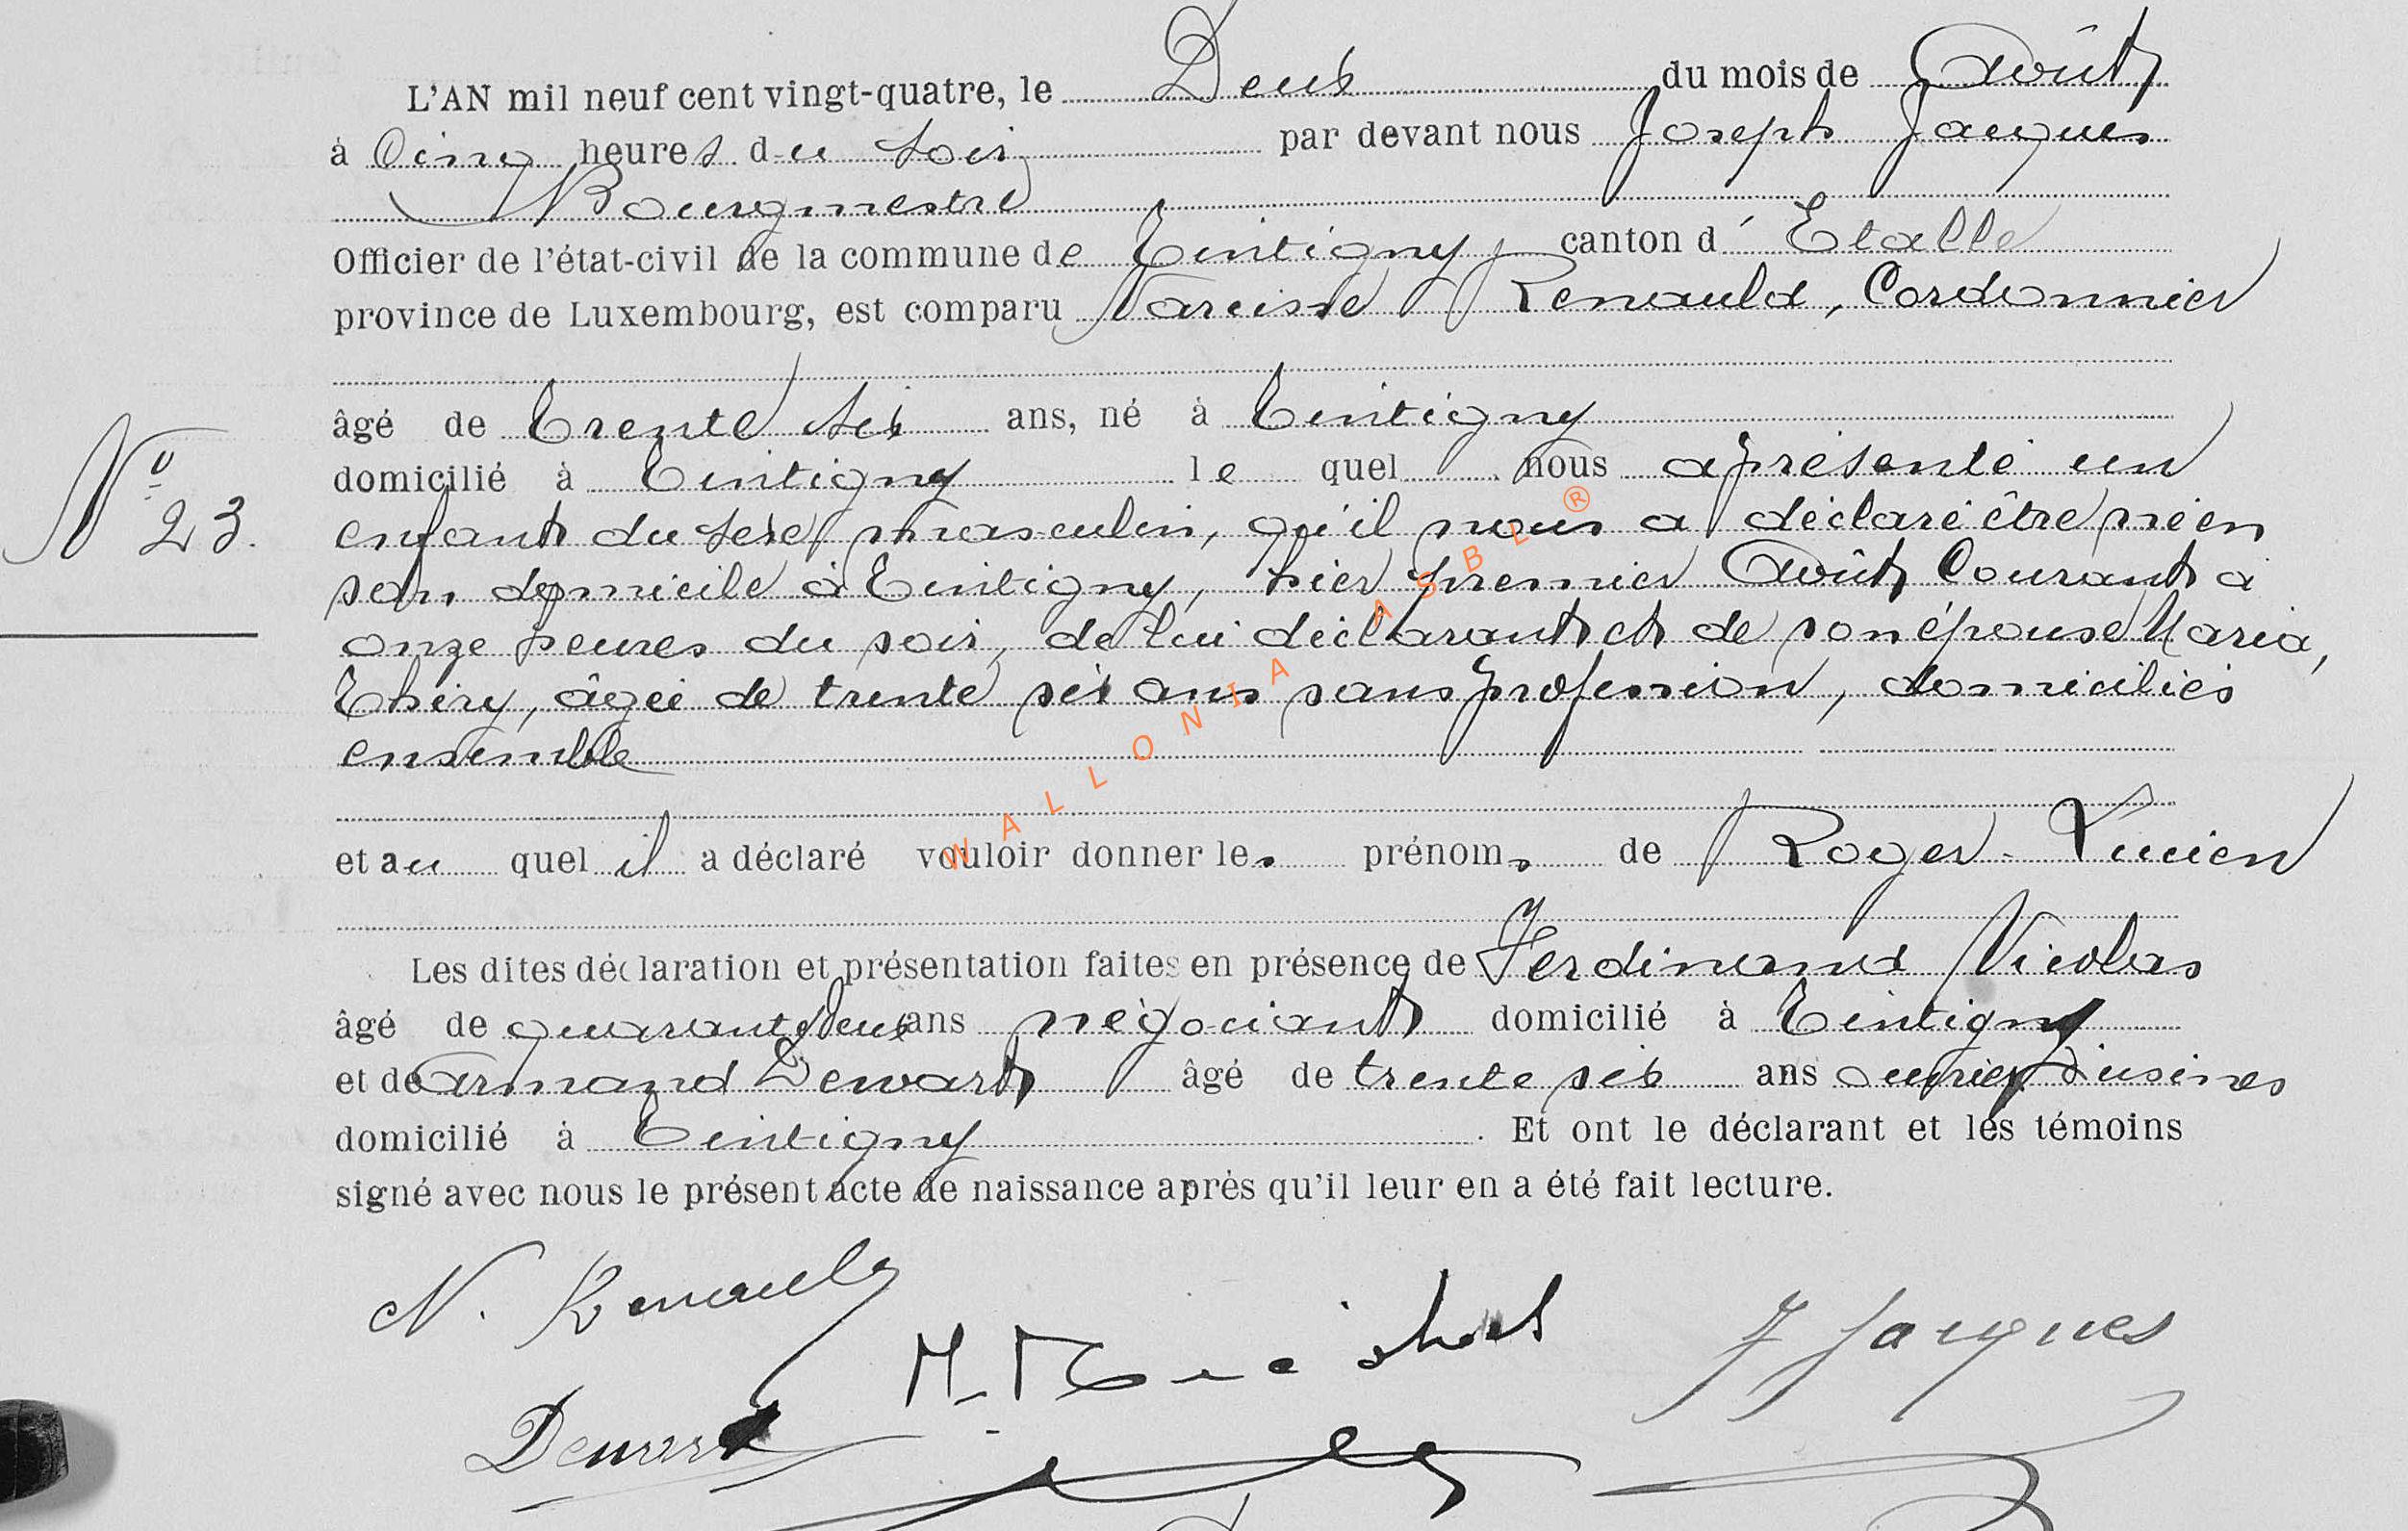 L'AN mil neuf cent vingt-quatre, le Deux du mois de Août
à Cinq heures du soir par devant nous Joseph Jacques
Bourgmestre
Officier de l'état-civil de la commune de Tintigny canton d' Etalle
province de Luxembourg, est comparu Narcisse Renauld, Cordonnier
âgé de trente six ans, né à Tintigny
domicilié à Tintigny le quel nous a présenté un
Nº 23.
enfant du sexe masculin, qu'il nous a déclaré être né en
son domicile à Tintigny, hier premier Août Courant à
onze heures du soir, de lui déclarant et de son épouse Maria,
Thiry, âgée de trente six ans sans profession, domiciliés
ensemble
et au quel il a déclaré vouloir donner les prénoms de Roger-Lucien
Les dites déclaration et présentation faites en présence de Ferdinand Nicolas
âgé de quarante deux ans négociant domicilié à Tintigny
et de Armand Dewart âgé de trente six ans ouvrier d'usines
domicilié à Tintigny. Et ont le déclarant et les témoins
signé avec nous le présent acte de naissance après qu'il leur en a été fait lecture.
N. Renauld
J Jacques
Dewart
WALLONIA ASBL ®